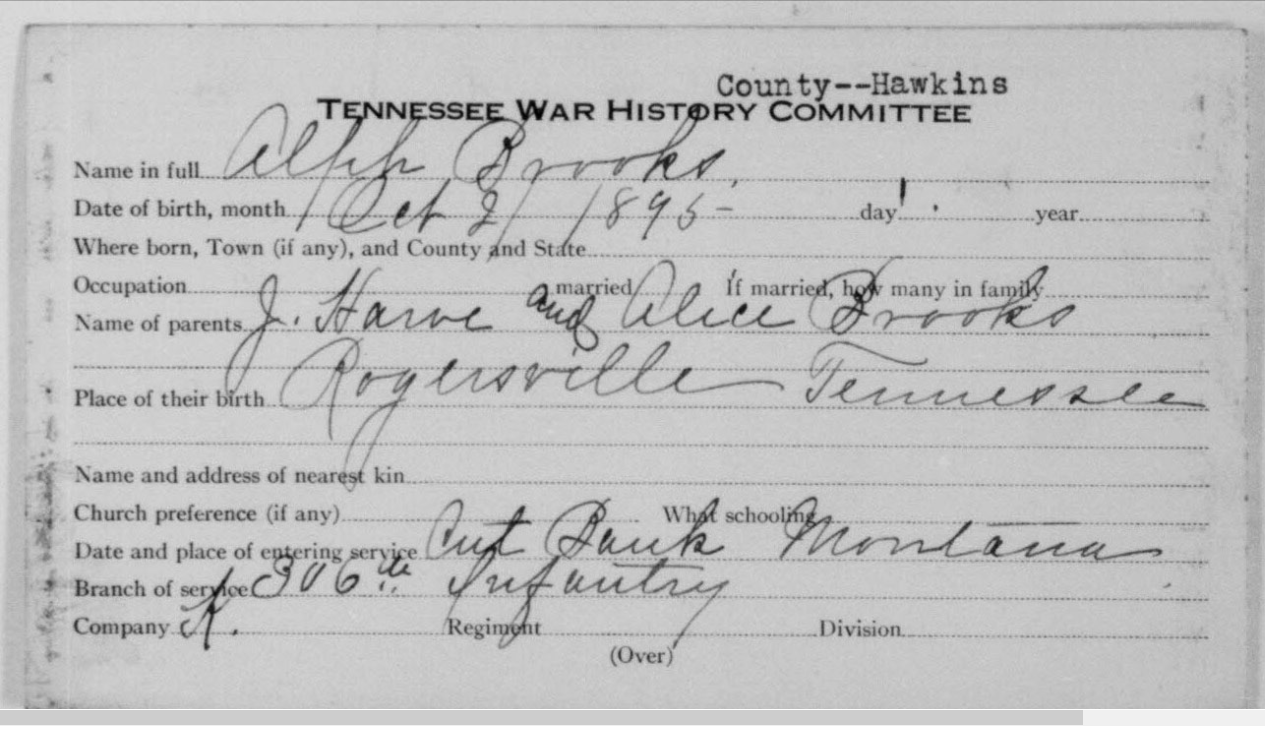 County--Hawkins
TENNESSEE WAR HISTORY COMMITTEE
Name in full Alph Brooks.
Date of birth, month Oct 2 / 1895 day year
Where born, Town (if any), and County and State
Occupation married If married, how many in family
Name of parents J. Harve and Alice Brooks
Place of their birth Rogersville Tennessee
Name and address of nearest kin
Church preference (if any) What schooling
Date and place of entering service Cut Bank Montana
Branch of service 306th Infantry
Company K. Regiment Division
(Over)